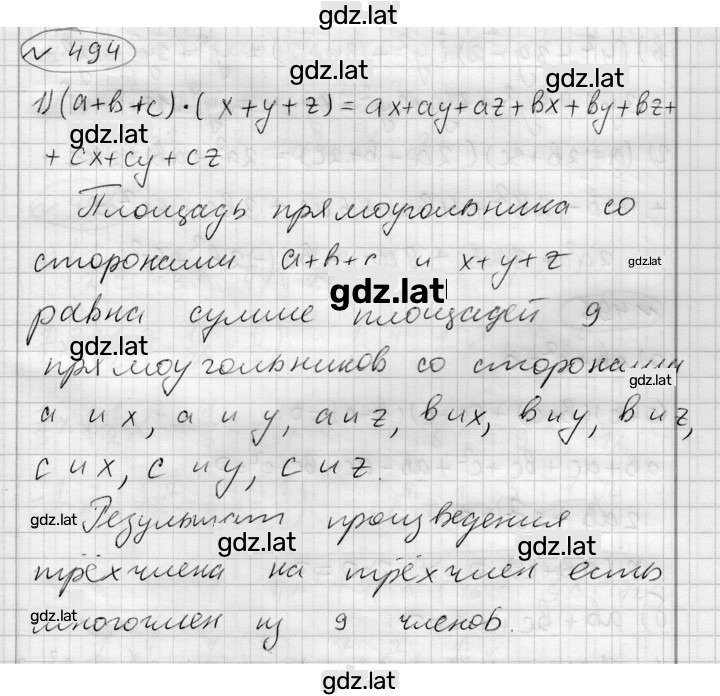 gdz.lat
№ 494
gdz.lat
gdz.lat
1) (a+b+c)·(x+y+z)=ax+ay+az+bx+by+bz+
gdz.lat
+cx+cy+cz
Площадь прямоугольника со
сторонами a+b+c и x+y+z
gdz.lat
gdz.lat
равна сумме площадей 9
gdz.lat
прямоугольников со сторонами
gdz.lat
a и x, a и y, a и z, b и x, b и y, b и z,
c и x, c и y, c и z.
gdz.lat
Результат произведения
gdz.lat
gdz.lat
трёхчлена на трёхчлен есть
gdz.lat
многочлен из 9 членов.
gdz.lat